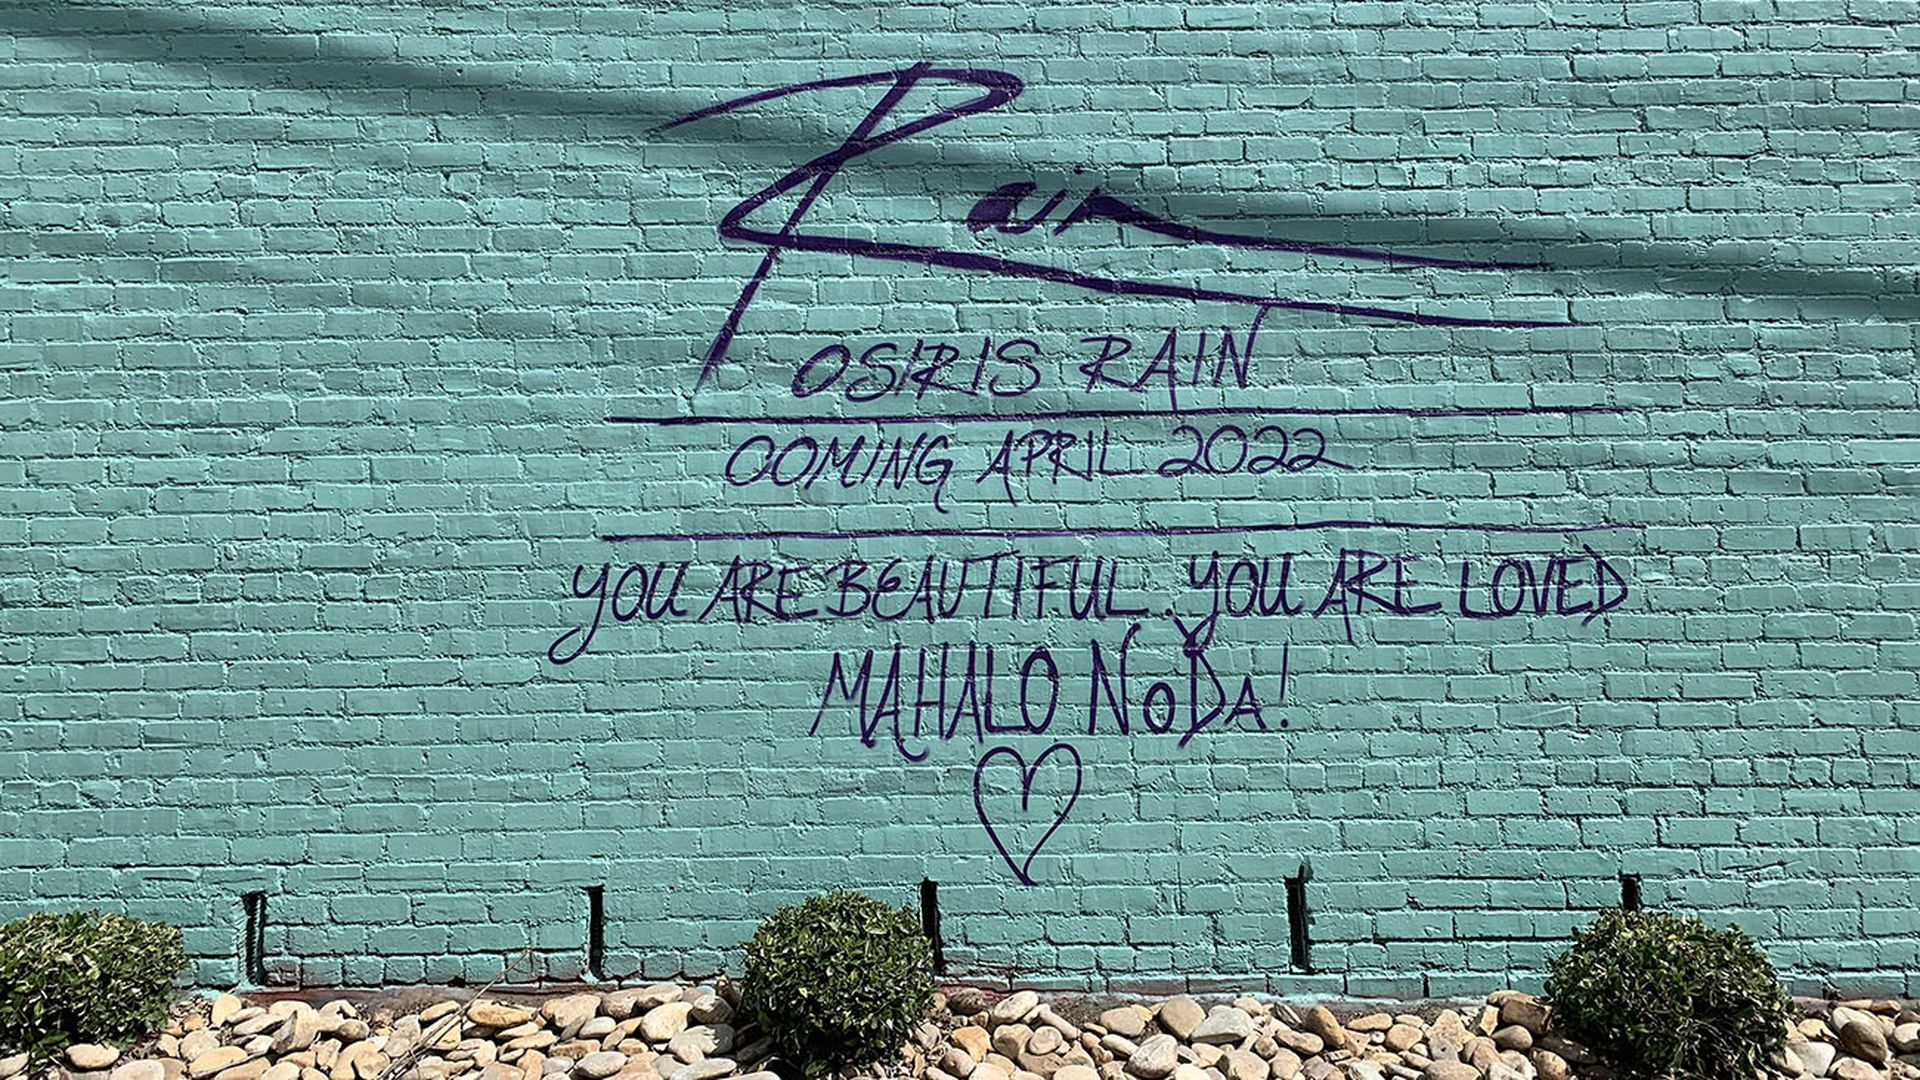 Rain
OSIRIS RAIN
COMING APRIL 2022
YOU ARE BEAUTIFUL. YOU ARE LOVED
MAHALO NoDa!